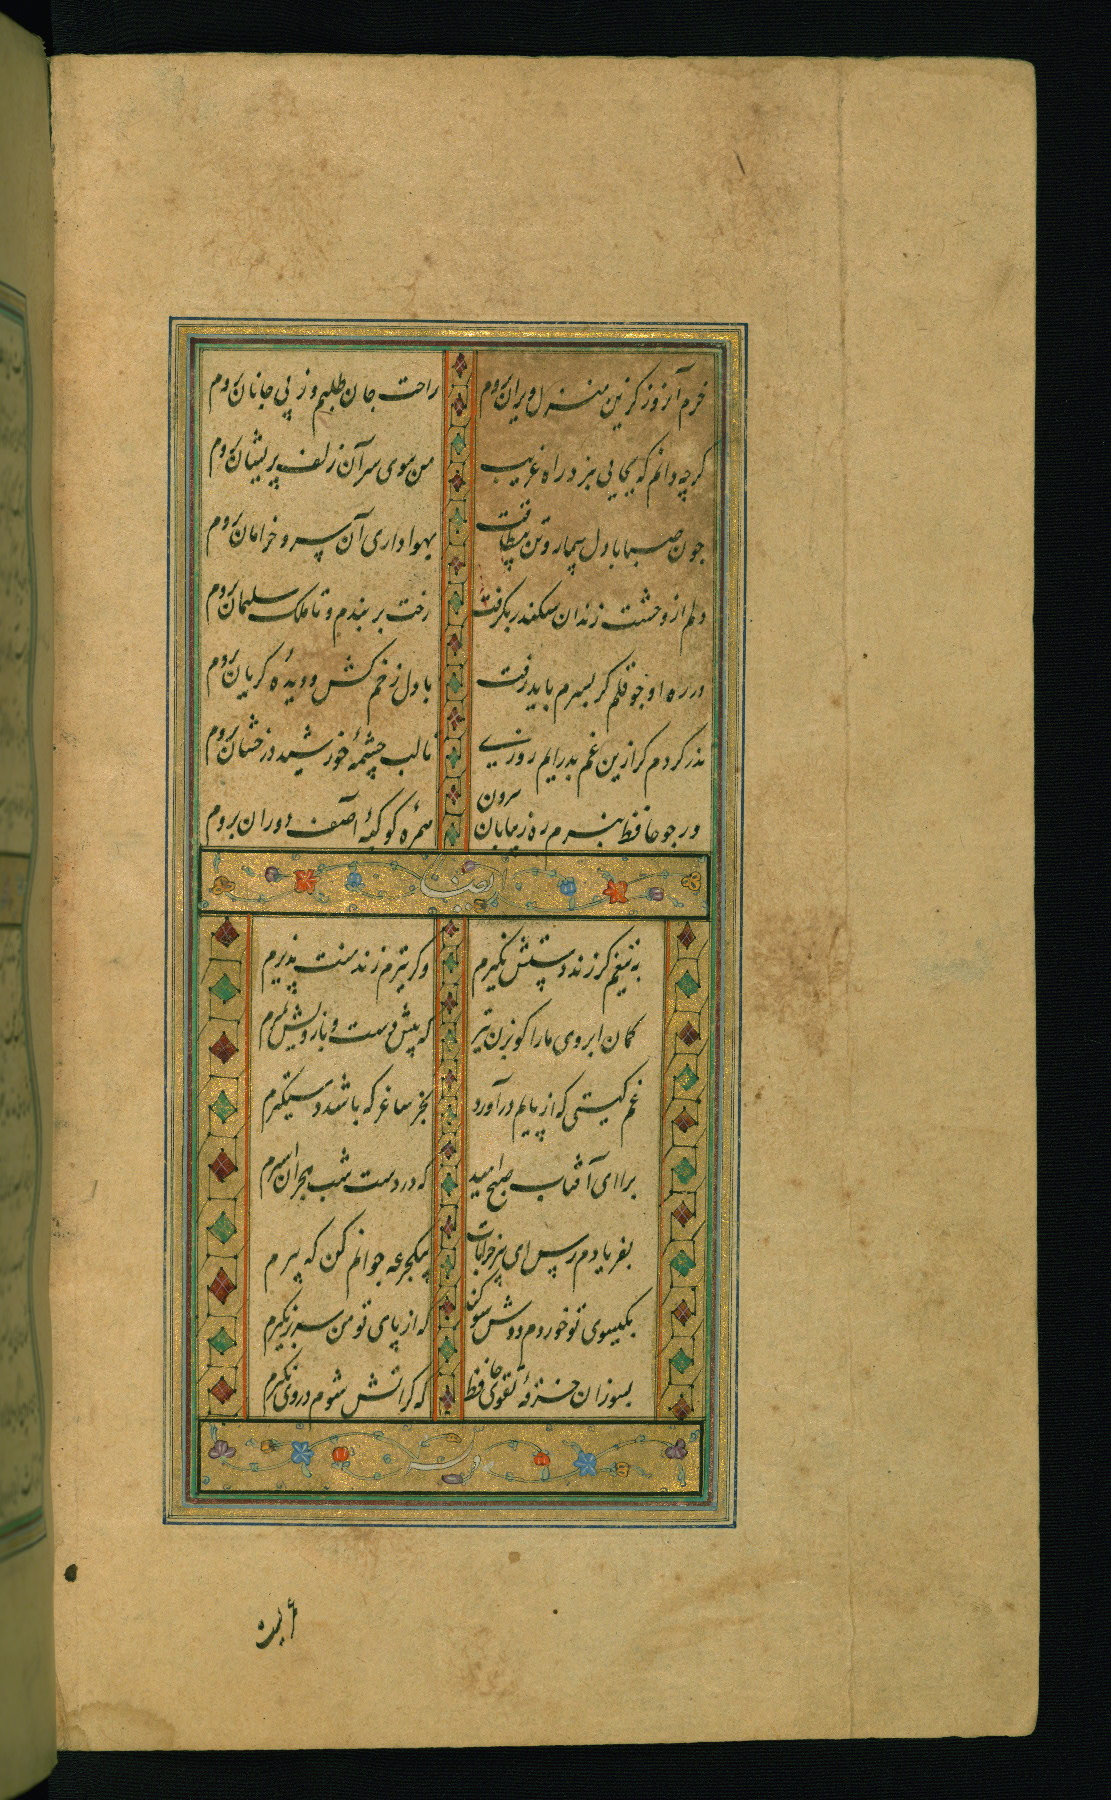 خرم آنروز کزین منزل ویران بروم راحت جان طلبم وز پی جانان بروم
کرچه دانم که بجایی نبرد راه غریب من سوی سر آن زلف پریشان بروم
چون صبا با دل بیمار و تن بیطاقت بهواداری آن سرو خرامان بروم
دلم از وحشت زندان سکندر بکرفت رخت بر بندم و تا ملک سلیمان بروم
در ره او چو قلم کر بسرم باید رفت با دل زخم کش و دیدهٔ کریان بروم
نذر کردم کر ازین غم بدر ایم روزی تا لب چشمهٔ خورشید درخشان بروم
ور چو حافظ نبرم ره ز بیابان برون همره کوکبهٔ آصف دوران بروم
ایضا
به تیغم کر زند دستش نکیرم وکر تیرم زند منت پذیرم
کمان ابروی ما را کو بزن تیر که پیش دست و بازویش بمیرم
غم کیتی کر از پایم درآورد بجز ساغر که باشد دستکیرم
برا ای آفتاب صبح امید که در دست شب هجران اسیرم
بفریادم رس ای پیر خرابات بیکجرعه جوانم کن که پیرم
بکیسوی تو خوردم دوش سوکند که از پای تو من سر برنکیرم
بسوز ان خرقهٔ تقوی حافظ که کر اتش شوم در وی نکیرم
وله